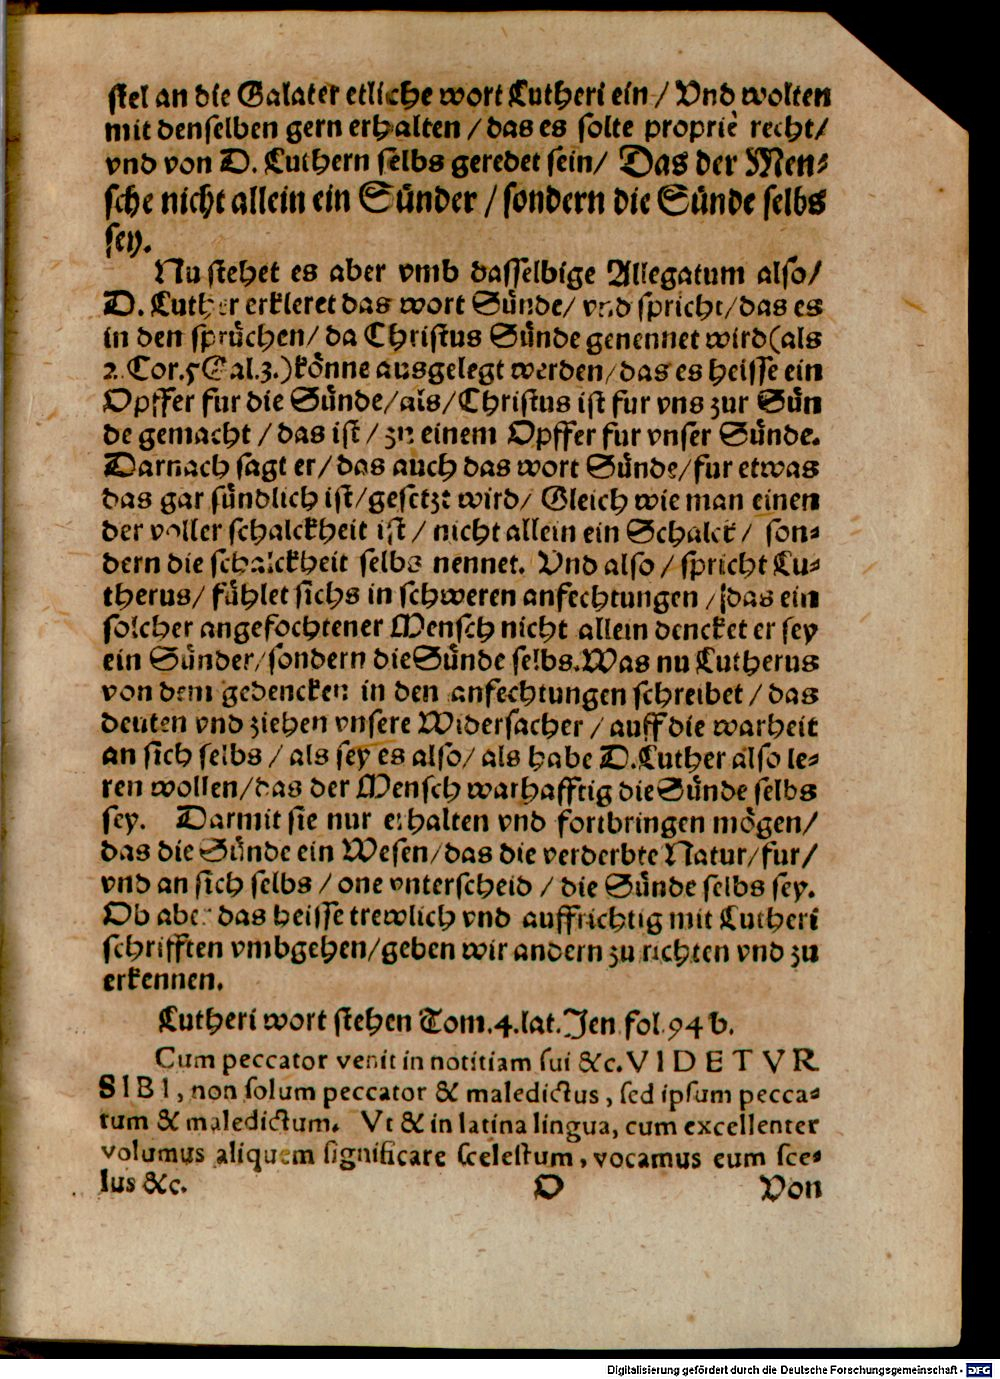 stel an die Galater etliche wort Lutheri ein / Vnd wolten
mit denselben gern erhalten / das es solte propriè recht /
vnd von D. Luthern selbs geredet sein / Das der Men-
sche nicht allein ein Sünder / sondern die Sünde selbs
sey.
Nu stehet es aber vmb dasselbige Allegatum also /
D. Luther erkleret das wort Sünde / vnd spricht / das es
in den sprüchen / da Christus Sünde genennet wird (als
2. Cor. 5 Gal. 3.) könne ausgelegt werden / das es heisse ein
Opffer fur die Sünde / als / Christus ist fur vns zur Sün
de gemacht / das ist / zu einem Opffer fur vnser Sünde.
Darnach sagt er / das auch das wort Sünde / fur etwas
das gar sündlich ist / gesetzt wird / Gleich wie man einen
der voller schalckheit ist / nicht allein ein Schalck / son-
dern die schalckheit selbs nennet. Vnd also / spricht Lu-
therus / fühlet sichs in schweren anfechtungen / das ein
solcher angefochtener Mensch nicht allein dencket er sey
ein Sünder / sondern die Sünde selbs. Was nu Lutherus
von dem gedencken in den anfechtungen schreibet / das
deuten vnd ziehen vnsere Widersacher / auff die warheit
an sich selbs / als sey es also / als habe D. Luther also le-
ren wollen / das der Mensch warhafftig die Sünde selbs
sey. Darmit sie nur erhalten vnd fortbringen mögen /
das die Sünde ein Wesen / das die verderbte Natur / fur /
vnd an sich selbs / one vnterscheid / die Sünde selbs sey.
Ob aber das heisse trewlich vnd auffrichtig mit Lutheri
schrifften vmbgehen / geben wir andern zu richten vnd zu
erkennen.
Lutheri wort stehen Tom. 4. lat. Jen fol. 94 b.
Cum peccator venit in notitiam sui &c. VIDETVR
SIBI, non solum peccator & maledictus, sed ipsum pecca-
tum & maledictum. Vt & in latina lingua, cum excellenter
volumus aliquem significare scelestum, vocamus eum sce-
lus &c.
O Von
Digitalisierung gefördert durch die Deutsche Forschungsgemeinschaft - DFG